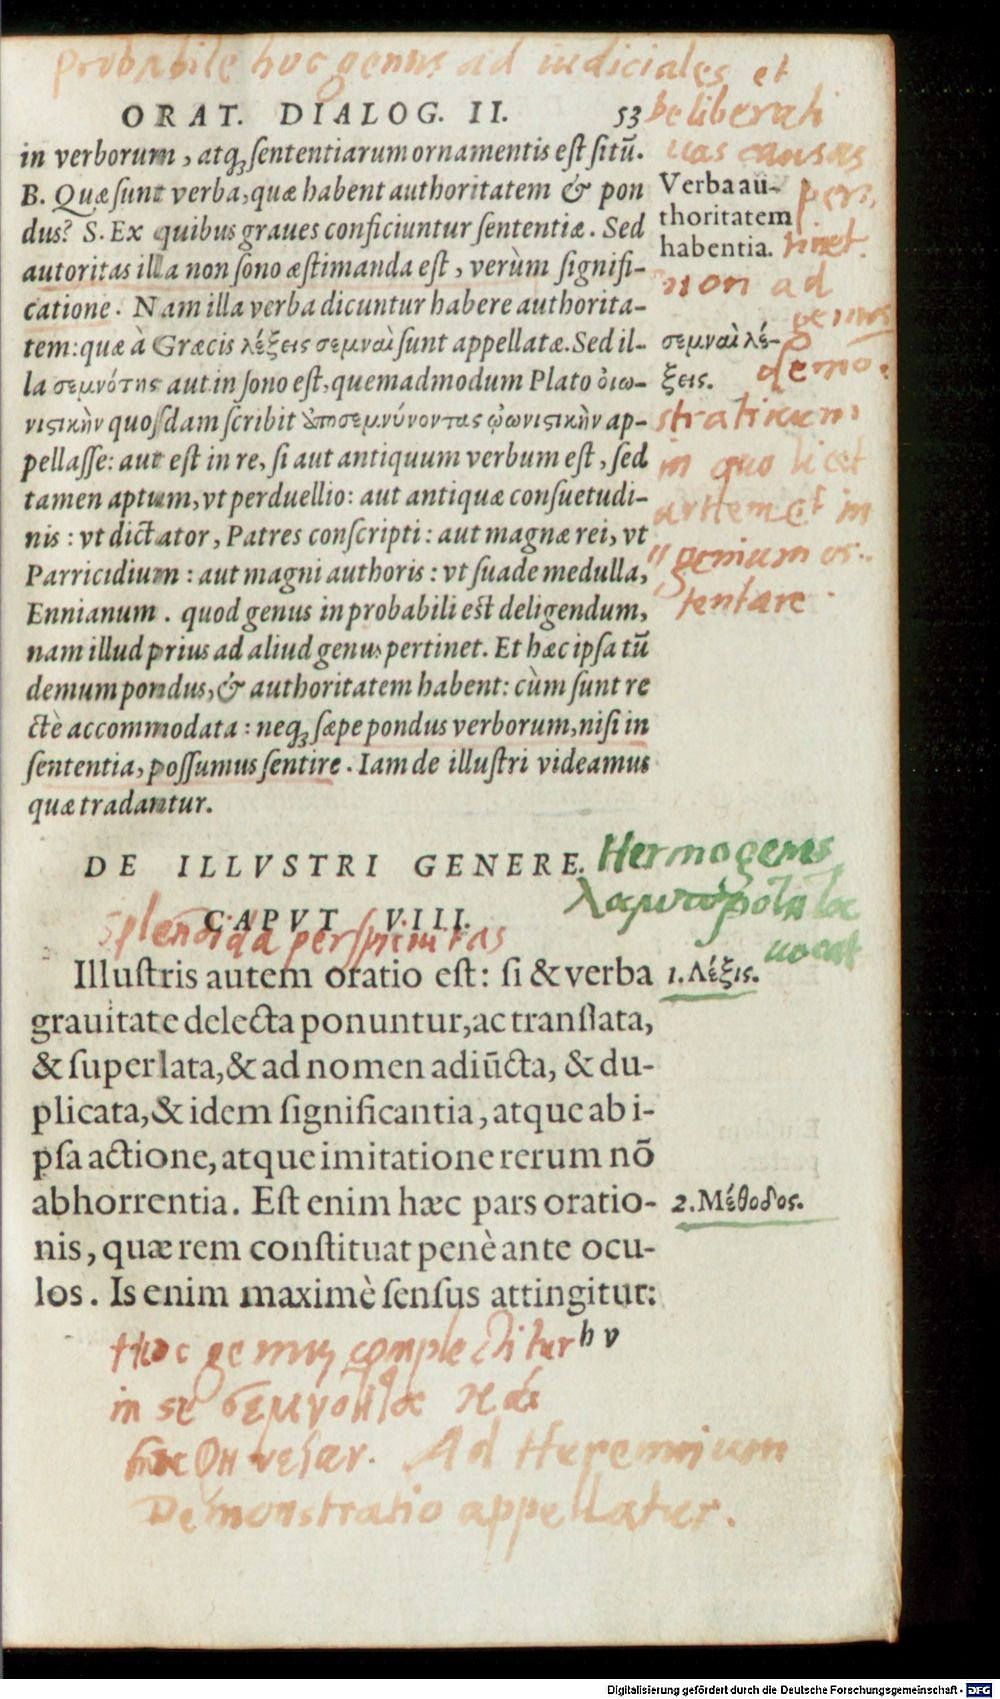 Probabile hoc genus ad iudiciales et
deliberati
uas causas
perti
tinet.
non ad
genus
demõ
stratiuum
in quo licet
artem et in
genium os
tentare.
ORAT. DIALOG. II. 53
in verborum, atqꝫ sententiarum ornamentis est sitũ.
B. Quæ sunt verba, quæ habent authoritatem & pon
dus? S. Ex quibus graues conficiuntur sententiæ. Sed
autoritas illa non sono æstimanda est, verùm signifi-
catione. Nam illa verba dicuntur habere authorita-
tem: quæ à Græcis λέξεις σεμναὶ sunt appellatæ. Sed il-
la σεμνότης aut in sono est, quemadmodum Plato ὀιω-
νιϛικὴν quosdam scribit ἀποσεμνύνοντας ᾠωνιϛικὴν ap-
pellasse: aut est in re, si aut antiquum verbum est, sed
tamen aptum, vt perduellio: aut antiquæ consuetudi-
nis: vt dictator, Patres conscripti: aut magnæ rei, vt
Parricidium: aut magni authoris: vt suade medulla,
Ennianum. quod genus in probabili est deligendum,
nam illud prius ad aliud genus pertinet. Et hæc ipsa tũ
demum pondus, & authoritatem habent: cùm sunt re
ctè accommodata: neqꝫ sæpe pondus verborum, nisi in
sententia, possumus sentire. Iam de illustri videamus
quæ tradantur.
Verba au-
thoritatem
habentia.
σεμναὶ λέ-
ξεις.
DE ILLVSTRI GENERE.
Hermogenes
λαμπρότητα
uocat
CAPVT VIII.
splendida perspicuitas
Illustris autem oratio est: si & verba
grauitate delecta ponuntur, ac translata,
& superlata, & ad nomen adiũcta, & du-
plicata, & idem significantia, atque ab i-
psa actione, atque imitatione rerum nõ
abhorrentia. Est enim hæc pars oratio-
nis, quæ rem constituat penè ante ocu-
los. Is enim maximè sensus attingitur:
1. Λέξις.
2. Μέθοδος.
h v
Hoc genus complectitur
in se σεμνότητα
Ad Herennium
Demonstratio appellatur.